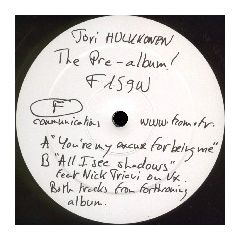 Jori HULKKONEN
The Pre-album!
F 159W
F
communications
www.fcom.fr.
A "You're my excuse for being me"
B "All I see shadows"
feat Nick Triani on Vx.
Both tracks from forthcoming
album.